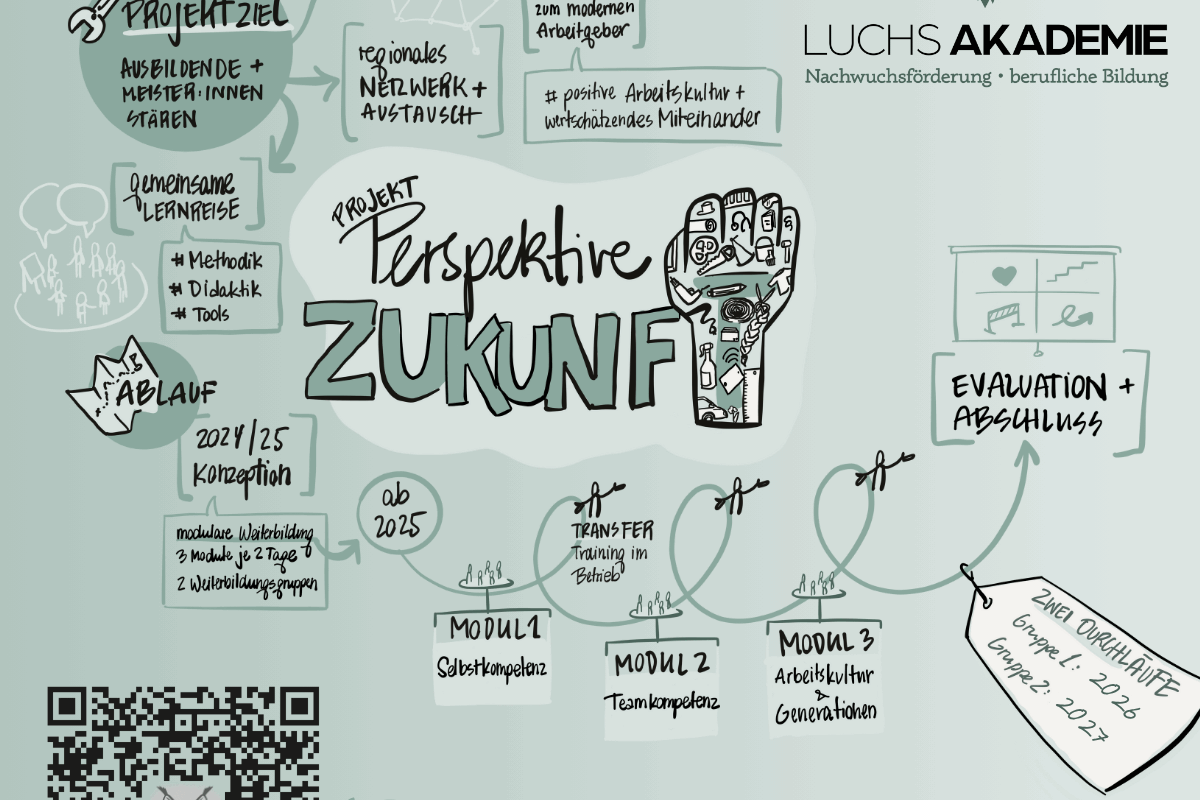 PROJEKTZIEL
AUSBILDENDE +
MEISTER:INNEN
STÄREN
regionales
NETZWERK +
AUSTAUSCH
zum modernen
Arbeitgeber
# positive Arbeitskultur +
wertschätzendes Miteinander
LUCHS AKADEMIE
Nachwuchsförderung • berufliche Bildung
gemeinsame
LERNREISE
# Methodik
# Didaktik
# Tools
PROJEKT
Perspektive
ZUKUNF
ABLAUF
2024/25
Konzeption
modulare Weiterbildung
3 Module je 2 Tage
2 Weiterbildungsgruppen
ab
2025
TRANSFER
Training im
Betrieb
MODUL 1
Selbstkompetenz
MODUL 2
Teamkompetenz
MODUL 3
Arbeitskultur
&
Generationen
EVALUATION +
ABSCHLUSS
ZWEI DURCHLÄUFE
Gruppe 1: 2026
Gruppe 2: 2027